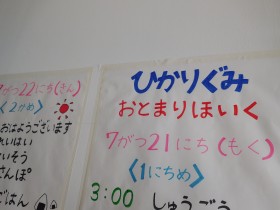 ひかりぐみ
おとまりほいく
7がつ21にち(もく)
<1にちめ>
3:00 しゅうごう
がつ22にち(きん)
<2かめ>
おはようございます
れいはい
いそう
さんぽ
ごはん